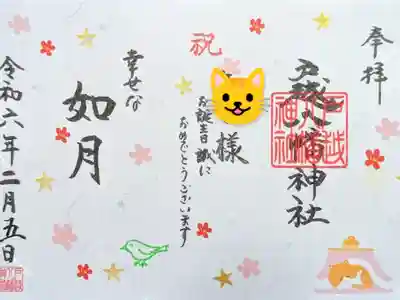 奉拝
戸越八幡神社
戸越八幡神社
祝
様
お誕生日 誠に
おめでとうございます
幸せな
如月
令和六年二月五日